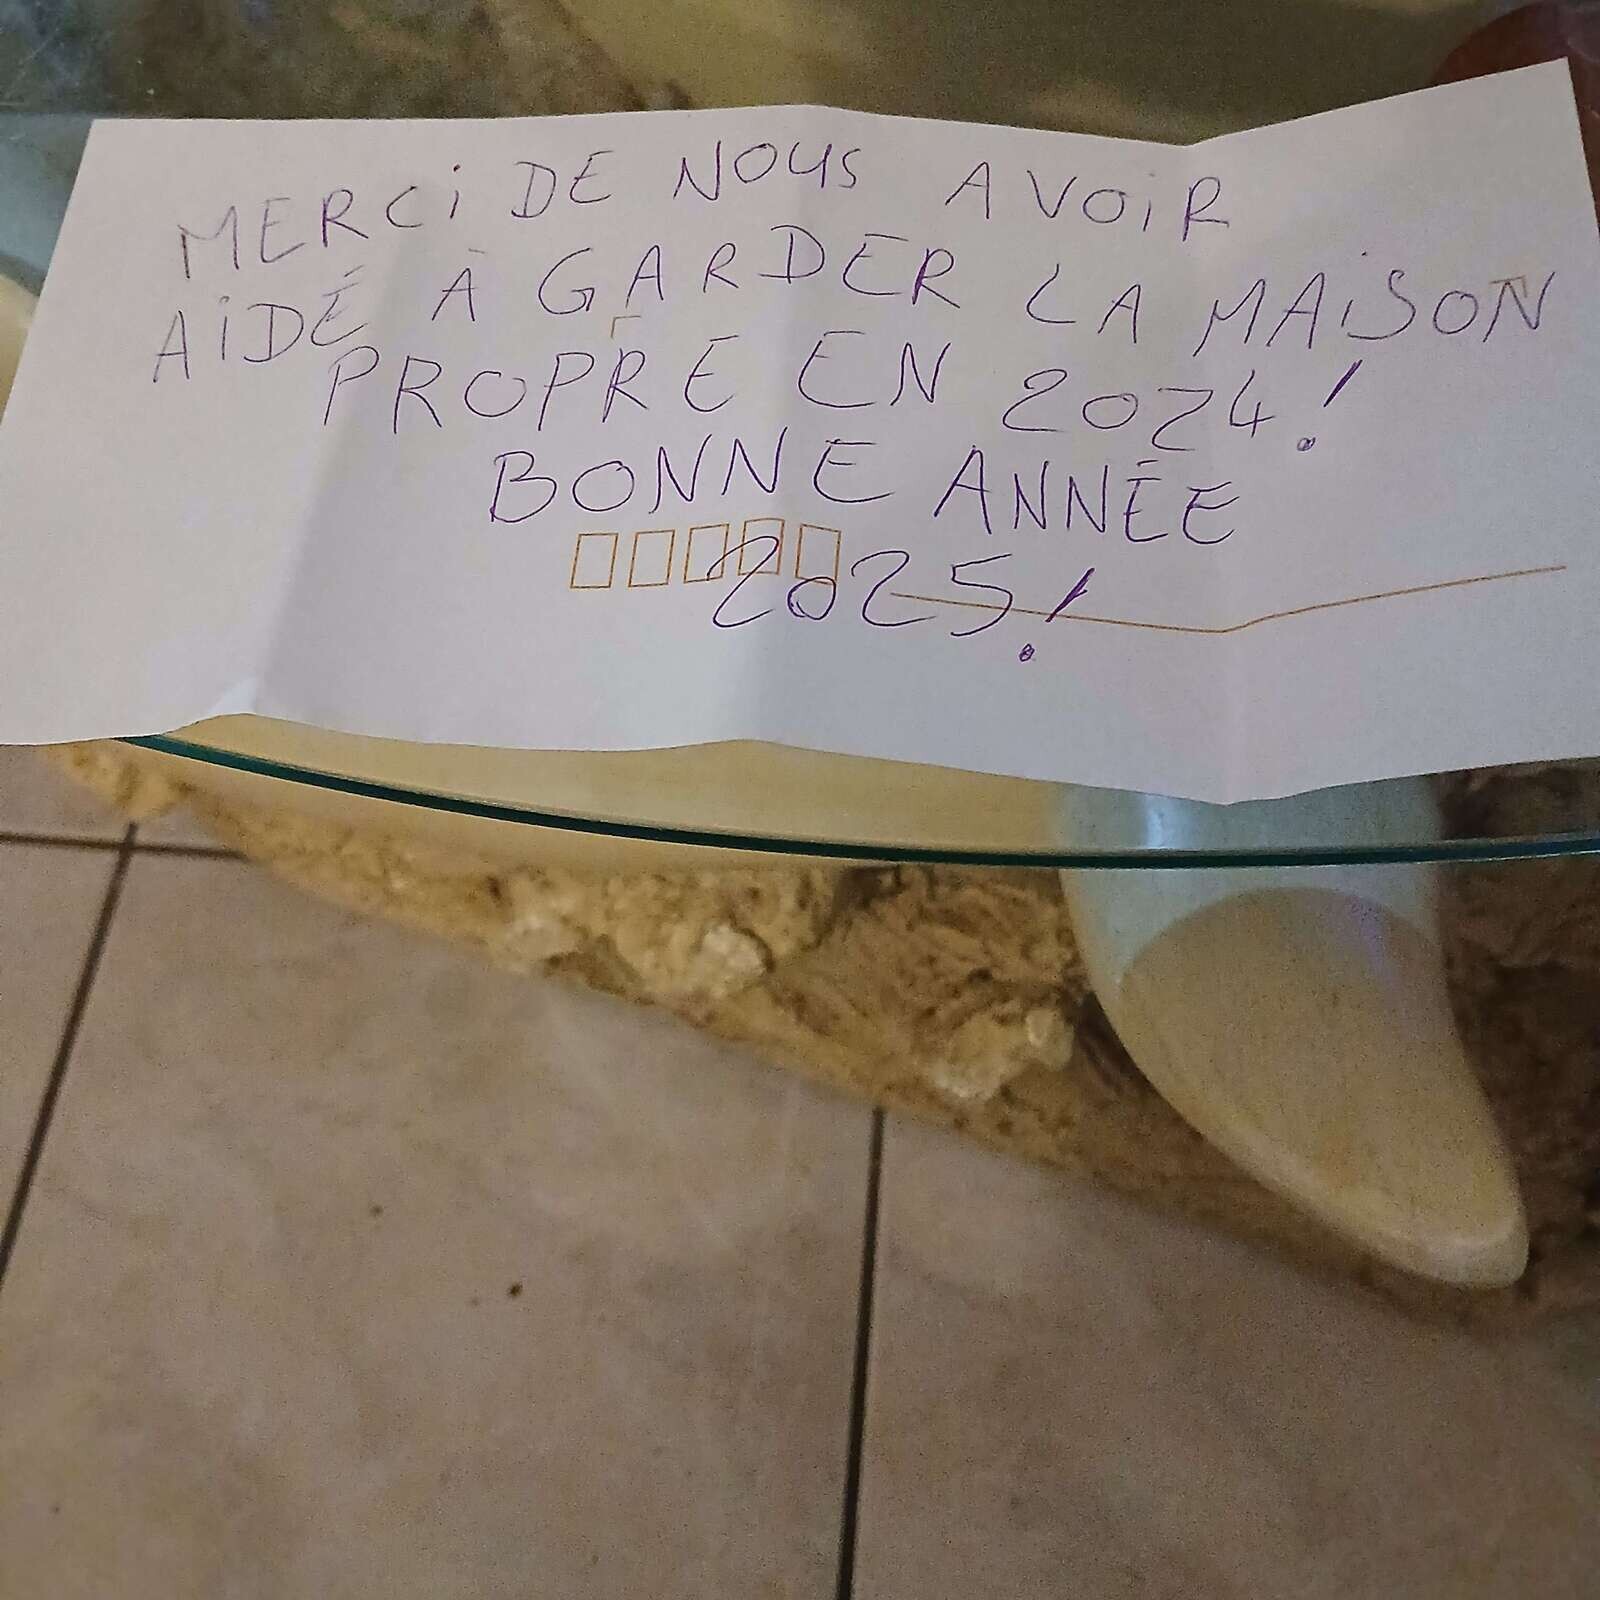 MERCi DE NOUS AVOiR
AiDÉ À GARDER LA MAiSON
PROPRE EN 2024!
BONNE ANNÉE
2025!